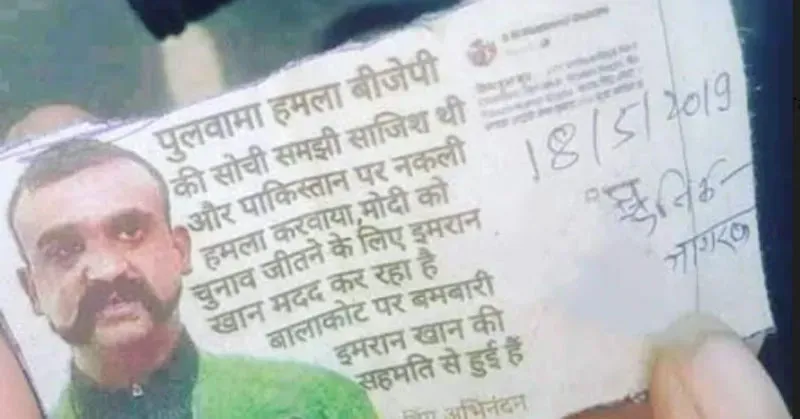 पुलवामा हमला बीजेपी
की सोची समझी साजिश थी
और पाकिस्तान पर नकली
हमला करवाया,मोदी को
चुनाव जीतने के लिए इमरान
खान मदद कर रहा है
बालाकोट पर बमबारी
इमरान खान की
सहमति से हुई हैं
अभिनंदन
18/5/2019
जागरण